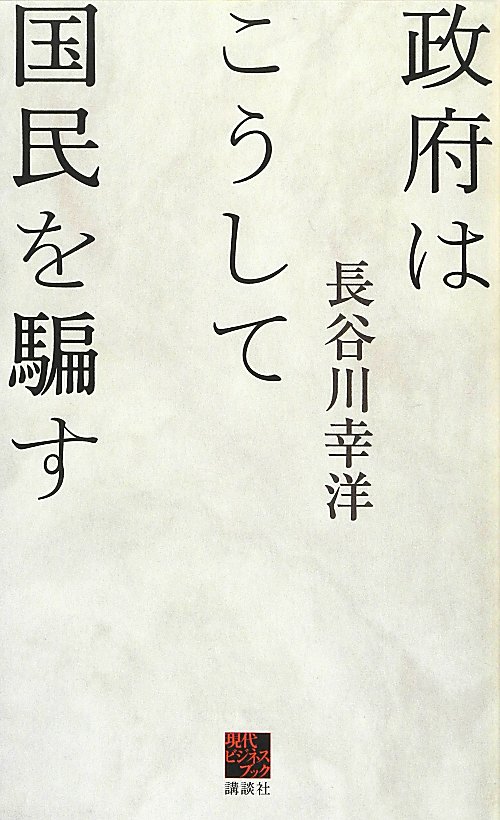 政府は
こうして
国民を騙す
長谷川幸洋
現代
ビジネス
ブック
講談社